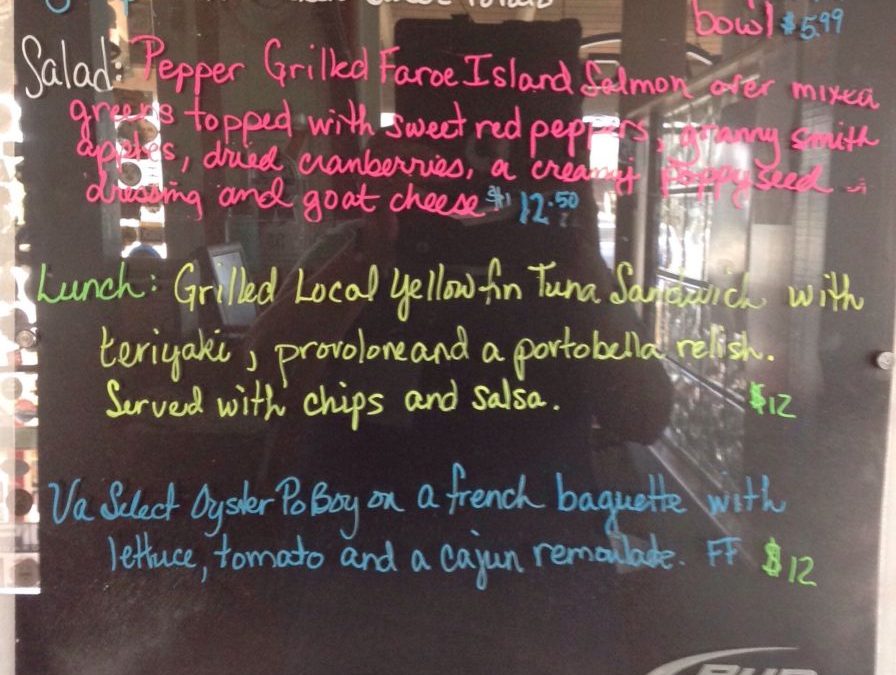 bowl $5.99
Salad: Pepper Grilled Faroe Island Salmon over mixed
greens topped with sweet red peppers, granny smith
apples, dried cranberries, a creamy poppyseed
dressing and goat cheese $12.50
Lunch: Grilled Local Yellowfin Tuna Sandwich with
teriyaki, provolone and a portobella relish.
Served with chips and salsa. $12
Va Select Oyster Po Boy on a french baguette with
lettuce, tomato and a cajun remoulade. FF $12
BUD